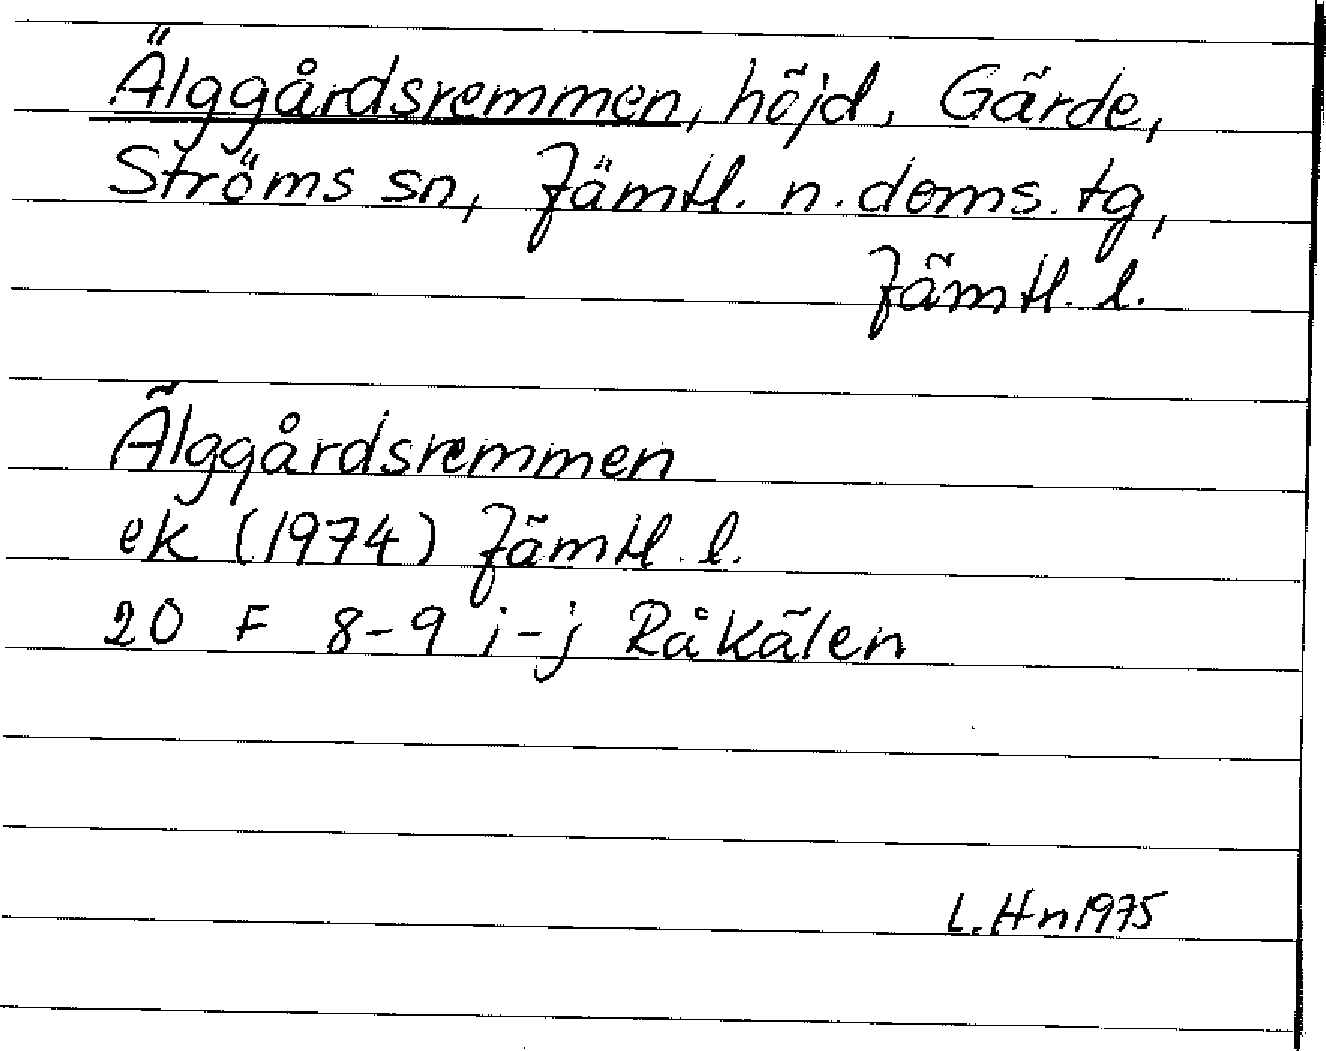 Älggårdsremmen, höjd, Gärde,
Ströms sn, Jämtl. n. doms. tg,
Jämtl. l.
Älggårdsremmen
ek (1974) Jämtl. l.
20 F 8-9 i-j Råkälen
L. Hn 1975